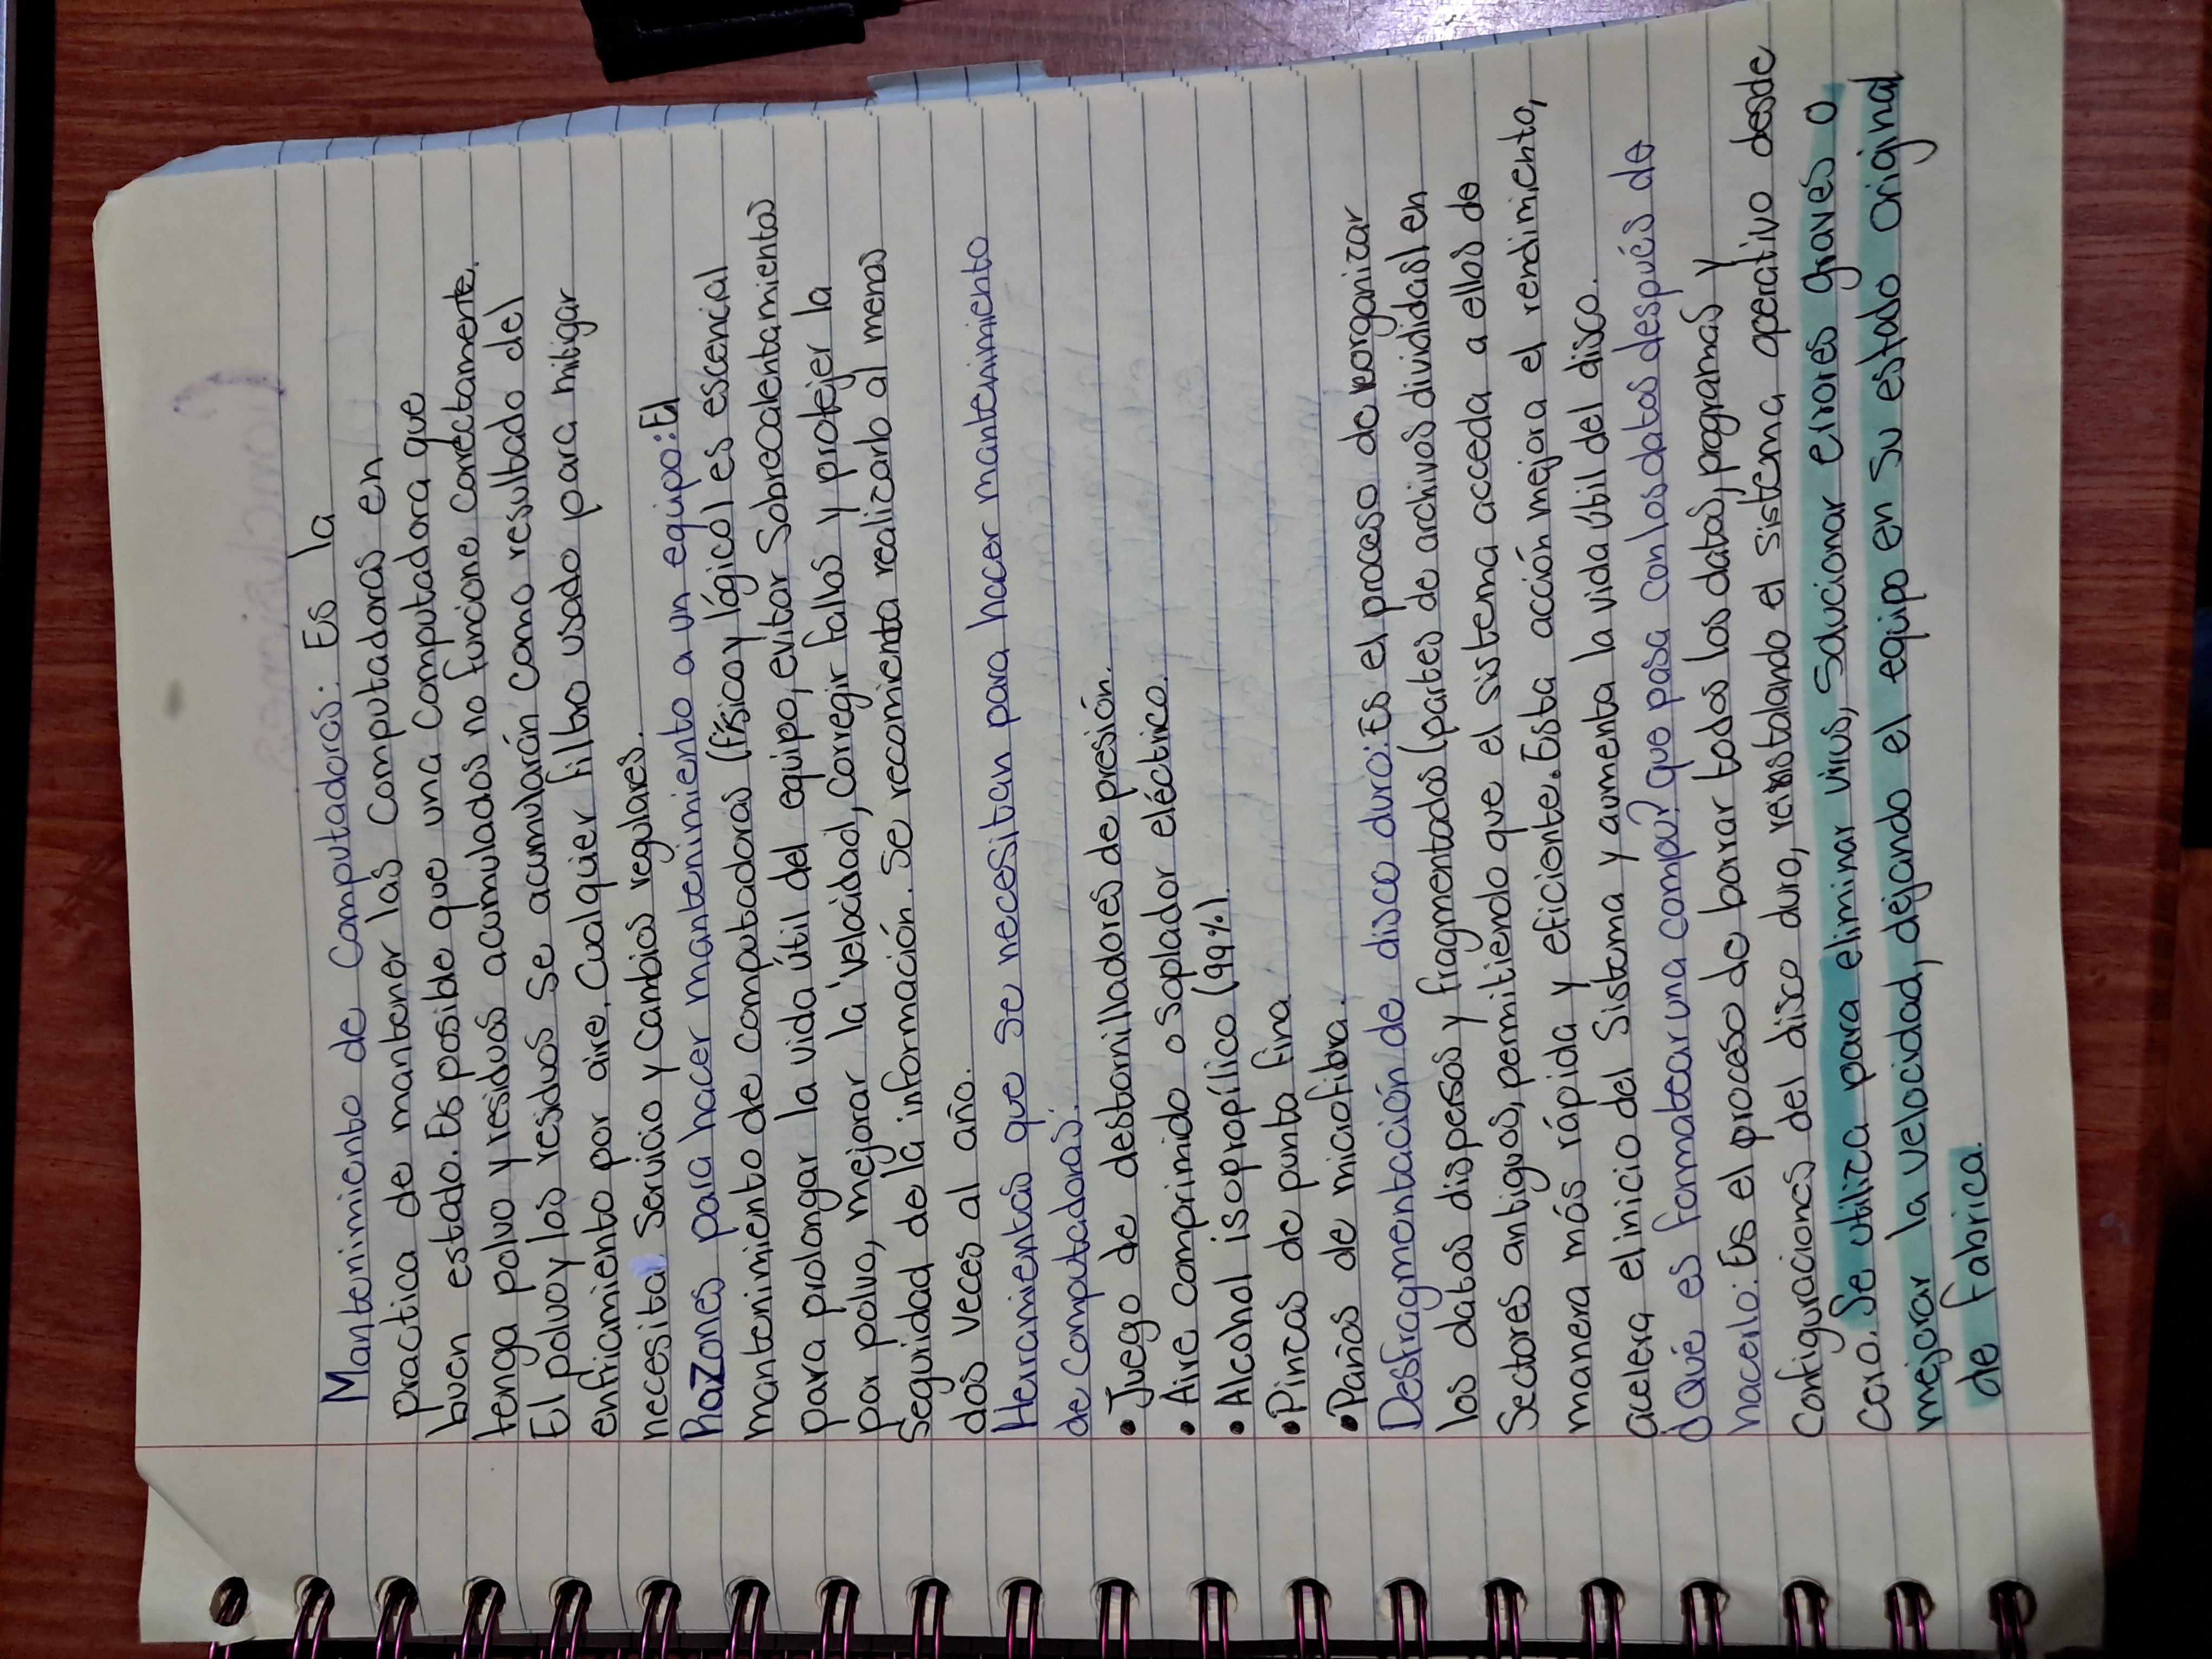 Mantenimiento de Computadoras: Es la
practica de mantener las computadoras en
buen estado. Es posible que una computadora que
tenga polvo y residuos acumulados no funcione correctamente.
El polvo y los residuos se acumularán como resultado del
enfriamiento por aire. Cualquier filtro usado para mitigar
necesita servicio y cambios regulares.
Razones para hacer mantenimiento a un equipo: El
mantenimiento de computadoras (físico y lógico) es escencial
para prolongar la vida útil del equipo, evitar sobrecalentamientos
por polvo, mejorar la velocidad, corregir fallas y protejer la
seguridad de la información. Se recomienta realizarlo al menos
dos veces al año.
Herramientas que se necesitan para hacer mantenimiento
de computadoras:
• Juego de destornilladores de presión.
• Aire comprimido o soplador eléctrico.
• Alcohol isopropílico (99%).
• Pincas de punta fina
• Paños de microfibra.
Desfragmentación de disco duro: Es el proceso de reorganizar
los datos dispersos y fragmentados (partes de archivos divididas) en
sectores antiguos, permitiendo que el sistema acceda a ellos de
manera más rápida y eficiente. Esta acción mejora el rendimiento,
acelera el inicio del sistema y aumenta la vida útil del disco.
¿Qué es formatear una compu? que pasa con los datos después de
hacerlo: Es el proceso de borrar todos los datos, programas y
configuraciones del disco duro, reinstalando el sistema operativo desde
cero. Se utiliza para eliminar virus, solucionar errores graves o
mejorar la velocidad, dejando el equipo en su estado original
de fabrica.